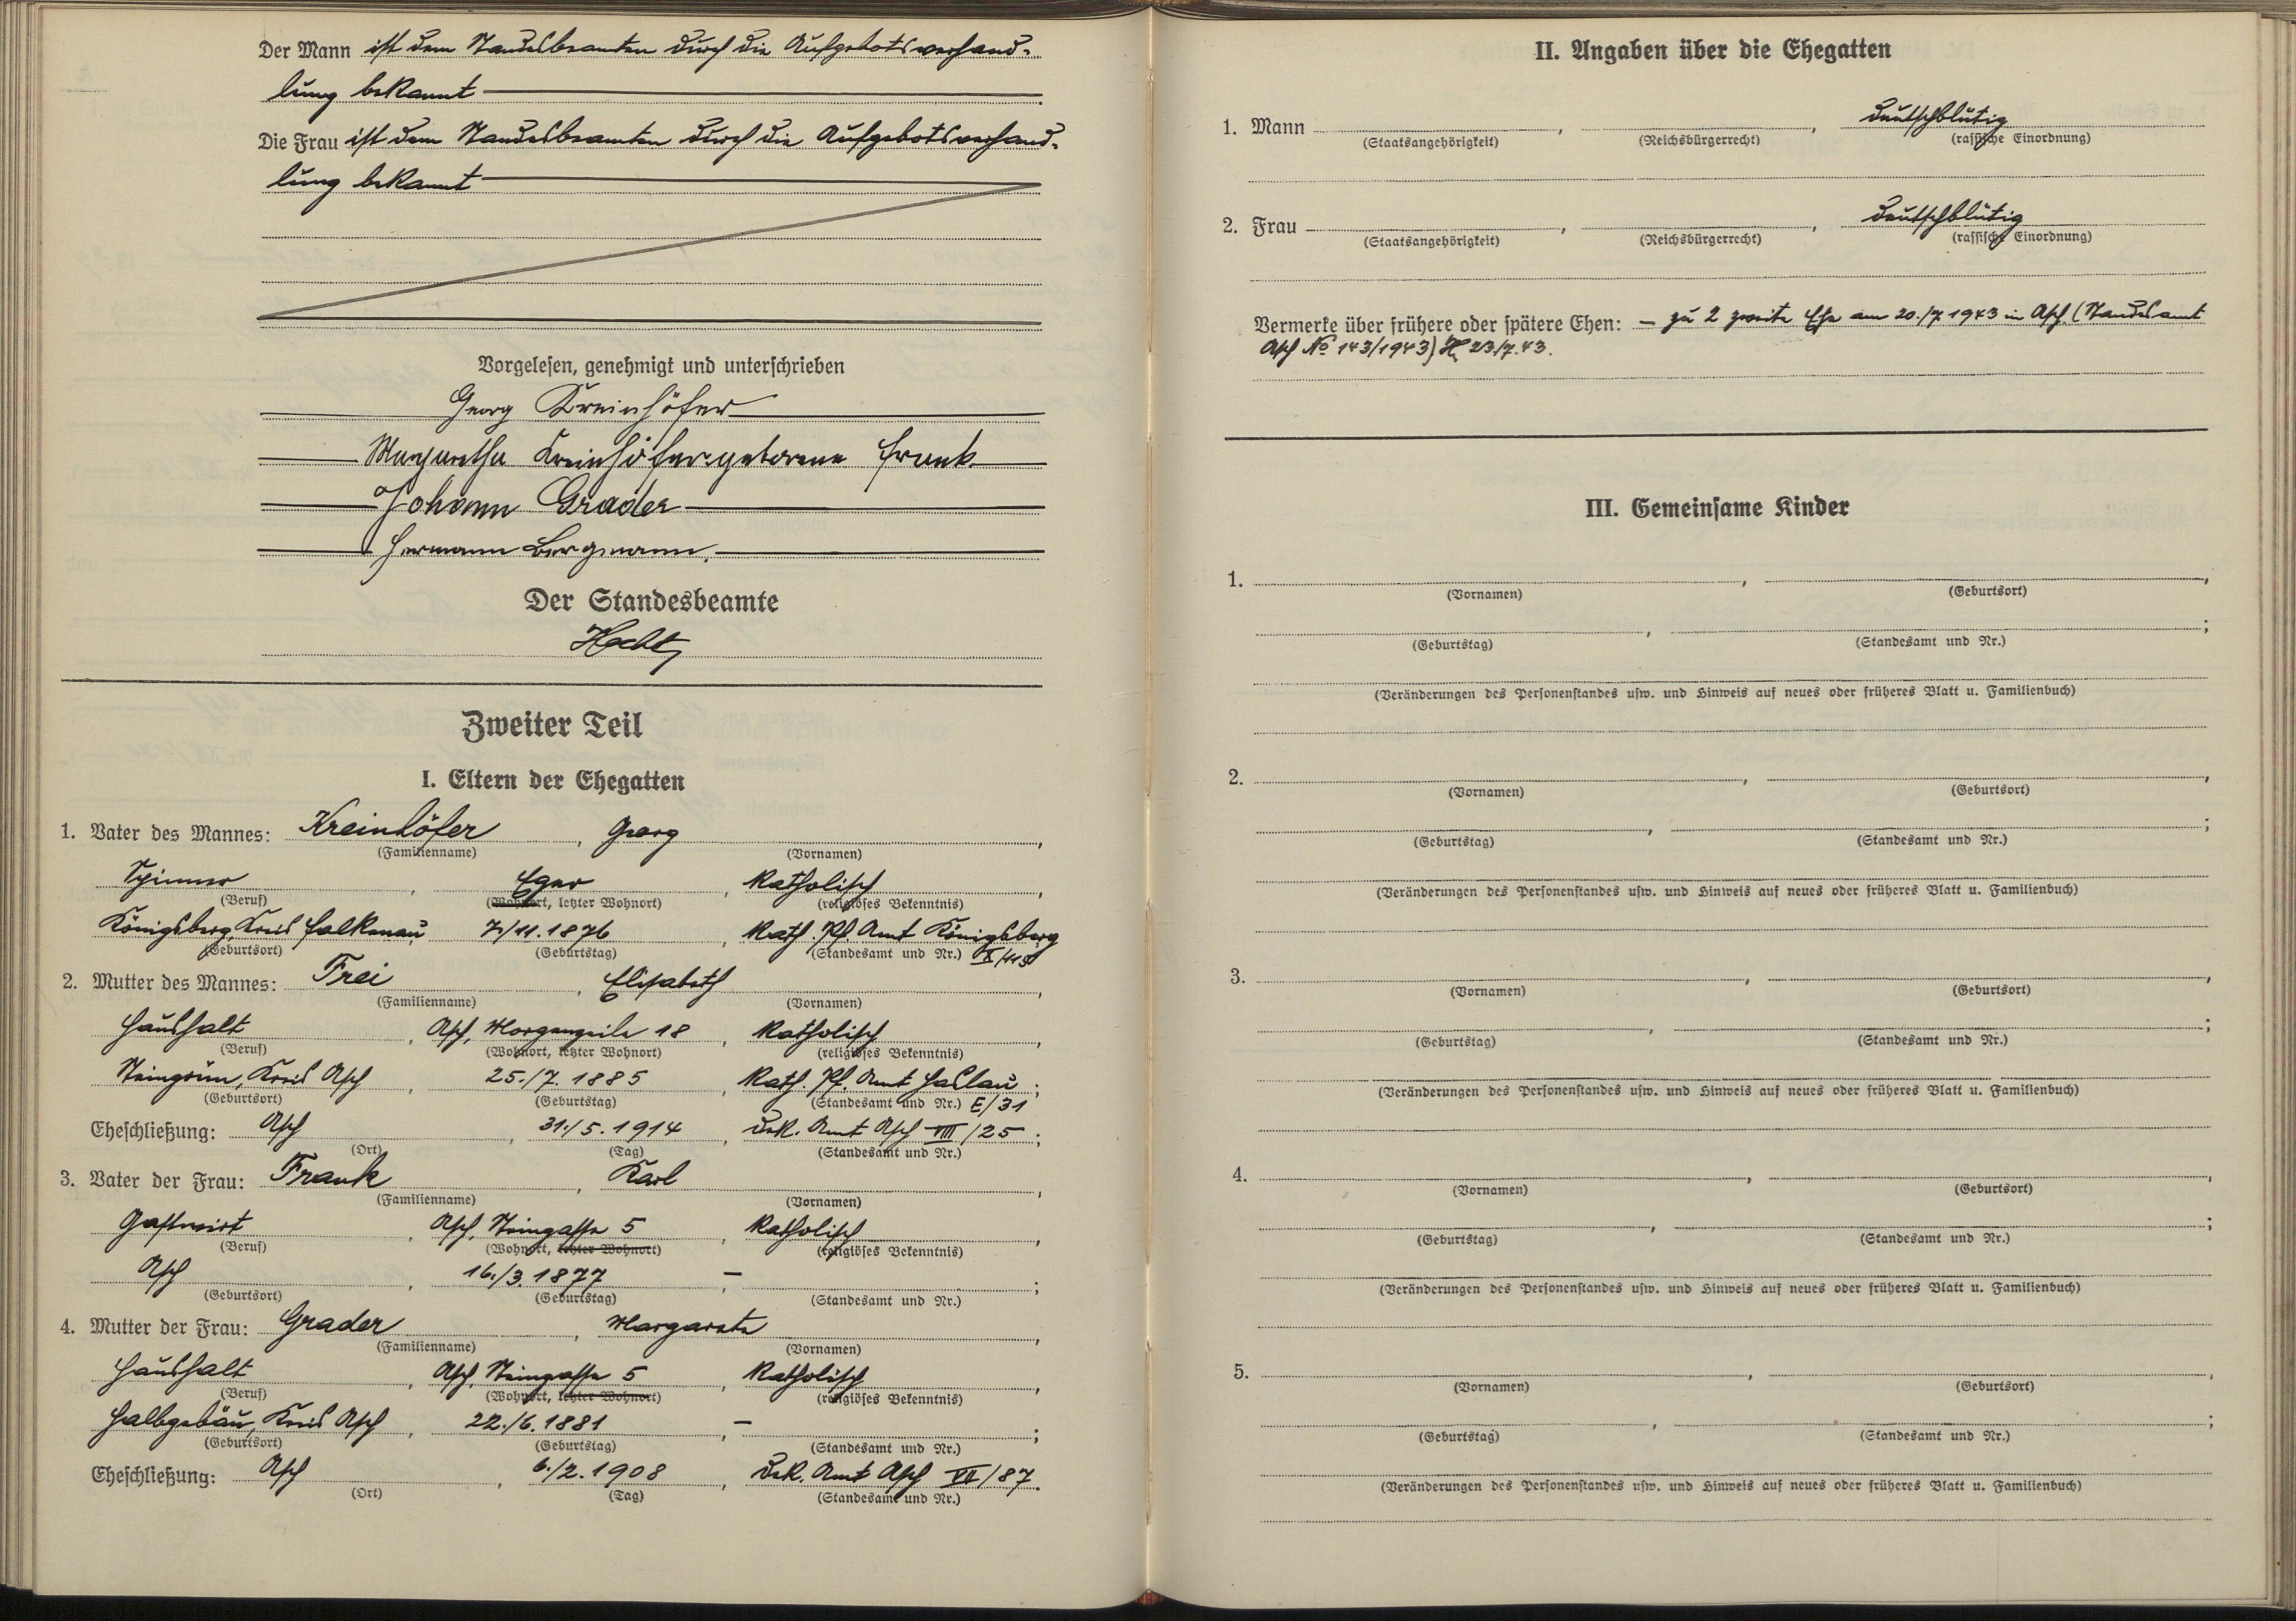 Der Mann ist dem Standesbeamten durch die Aufgebotsverhand-
lung bekannt
Die Frau ist dem Standesbeamten durch die Aufgebotsverhand-
lung bekannt
Vorgelesen, genehmigt und unterschrieben
Georg Kreinhöfer
Margaretha Kreinhöfer geborene Frank
Johann Grader
Hermann Bergmann.
Der Standesbeamte
Hecht
Zweiter Teil
I. Eltern der Ehegatten
1. Vater des Mannes: Kreinhöfer, Georg,
(Familienname) (Vornamen)
Spinner, Eger, katholisch,
(Beruf) (Wohnort, letzter Wohnort) (religiöses Bekenntnis)
Königsberg, Kreis Falkenau, 7./11.1876, Kath. Pf. Amt Königsberg
(Geburtsort) (Geburtstag) (Standesamt und Nr.) X/115
2. Mutter des Mannes: Frei, Elisabeth,
(Familienname) (Vornamen)
Haushalt, Asch, Morgenzeile 18, katholisch,
(Beruf) (Wohnort, letzter Wohnort) (religiöses Bekenntnis)
Steingrün, Kreis Asch, 25./7.1885, Kath. Pf. Amt Haslau;
(Geburtsort) (Geburtstag) (Standesamt und Nr.) E/31
Eheschließung: Asch, 31./5.1914, Dek. Amt Asch VIII/25;
(Ort) (Tag) (Standesamt und Nr.)
3. Vater der Frau: Frank, Karl,
(Familienname) (Vornamen)
Gastwirt, Asch, Steingasse 5, katholisch,
(Beruf) (Wohnort, letzter Wohnort) (religiöses Bekenntnis)
Asch, 16./3.1877, –;
(Geburtsort) (Geburtstag) (Standesamt und Nr.)
4. Mutter der Frau: Grader, Margarete,
(Familienname) (Vornamen)
Haushalt, Asch, Steingasse 5, katholisch,
(Beruf) (Wohnort, letzter Wohnort) (religiöses Bekenntnis)
Halbgebäu, Kreis Asch, 22./6.1881, –;
(Geburtsort) (Geburtstag) (Standesamt und Nr.)
Eheschließung: Asch, 6./2.1908, Dek. Amt Asch VII/87.
(Ort) (Tag) (Standesamt und Nr.)
II. Angaben über die Ehegatten
1. Mann , , deutschblütig
(Staatsangehörigkeit) (Reichsbürgerrecht) (rassische Einordnung)
2. Frau , , deutschblütig
(Staatsangehörigkeit) (Reichsbürgerrecht) (rassische Einordnung)
Vermerke über frühere oder spätere Ehen: – zu 2 zweite Ehe am 20./7.1943 in Asch (Standesamt
Asch No 143/1943) H 23/7.43.
III. Gemeinsame Kinder
1. , ,
(Vornamen) (Geburtsort)
, ;
(Geburtstag) (Standesamt und Nr.)
(Veränderungen des Personenstandes usw. und Hinweis auf neues oder früheres Blatt u. Familienbuch)
2. , ,
(Vornamen) (Geburtsort)
, ;
(Geburtstag) (Standesamt und Nr.)
(Veränderungen des Personenstandes usw. und Hinweis auf neues oder früheres Blatt u. Familienbuch)
3. , ,
(Vornamen) (Geburtsort)
, ;
(Geburtstag) (Standesamt und Nr.)
(Veränderungen des Personenstandes usw. und Hinweis auf neues oder früheres Blatt u. Familienbuch)
4. , ,
(Vornamen) (Geburtsort)
, ;
(Geburtstag) (Standesamt und Nr.)
(Veränderungen des Personenstandes usw. und Hinweis auf neues oder früheres Blatt u. Familienbuch)
5. , ,
(Vornamen) (Geburtsort)
, ;
(Geburtstag) (Standesamt und Nr.)
(Veränderungen des Personenstandes usw. und Hinweis auf neues oder früheres Blatt u. Familienbuch)